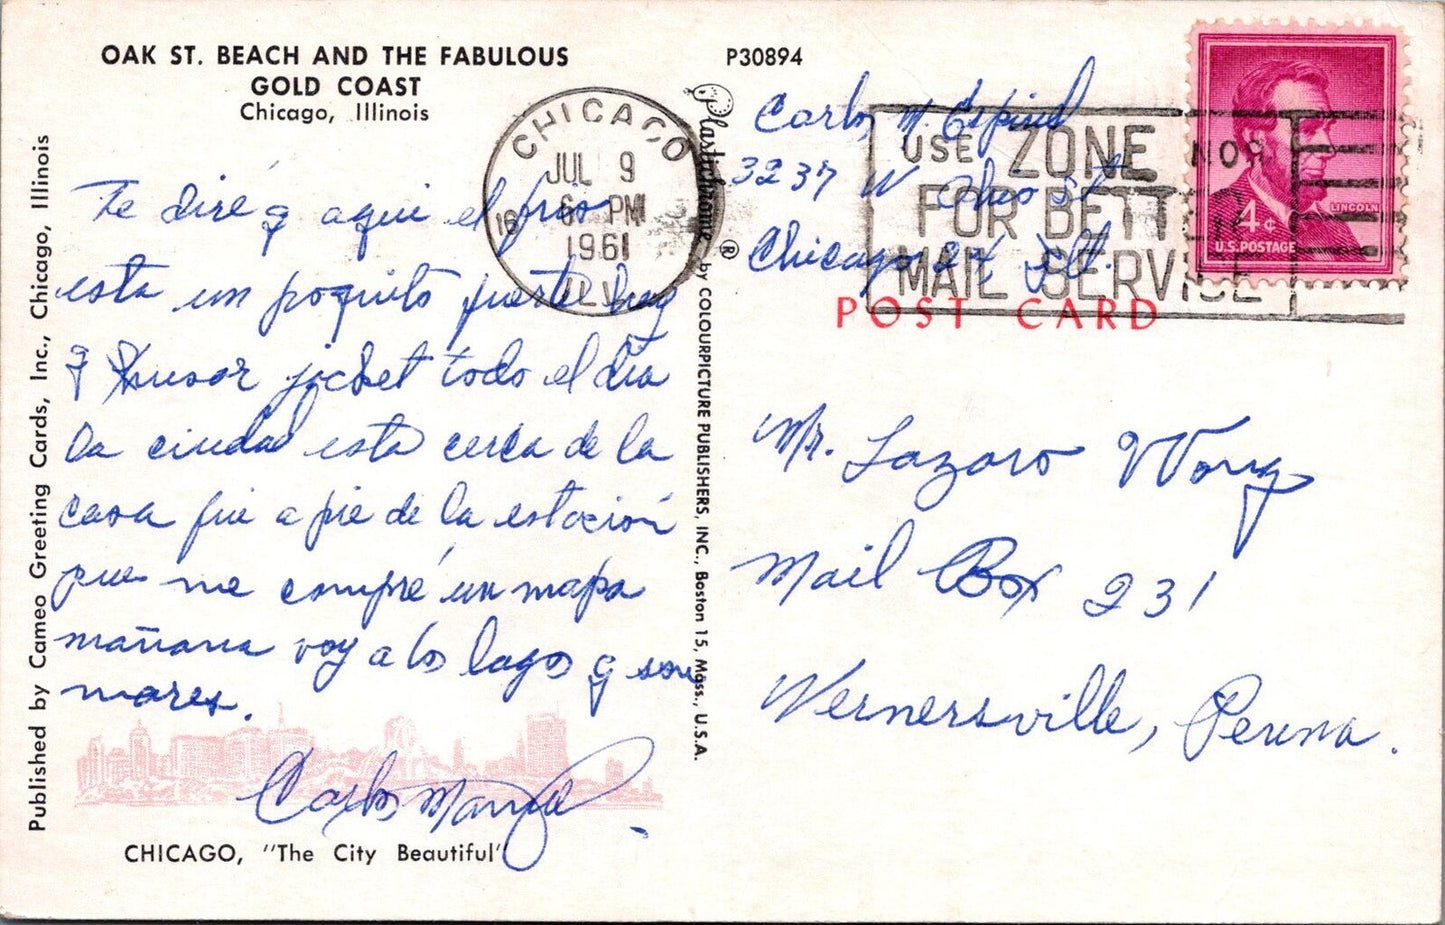 OAK ST. BEACH AND THE FABULOUS
GOLD COAST
Chicago, Illinois
Te diré q aqui el frio
esta un poquito fuerte hay
q usar jacket todo el dia
la ciudad esta cerca de la
casa fui a pie de la estación
pues me compré un mapa
mañana voy a los lagos q son
mares.
Carlos Manuel
CHICAGO, "The City Beautiful"
Published by Cameo Greeting Cards, Inc., Chicago, Illinois
CHICAGO
JUL 9
6 PM
1961
ILL
16
Plastichrome ® by COLOURPICTURE PUBLISHERS, INC., Boston 15, Mass., U.S.A.
P30894
Carlos M. Espinel
3237 W Ohio St
Chicago 24 Ill.
USE ZONE NOS
FOR BETTER
MAIL SERVICE
LINCOLN
4¢
U.S. POSTAGE
POST CARD
Mr. Lazaro Wong
Mail Box 231
Wernersville, Penna.